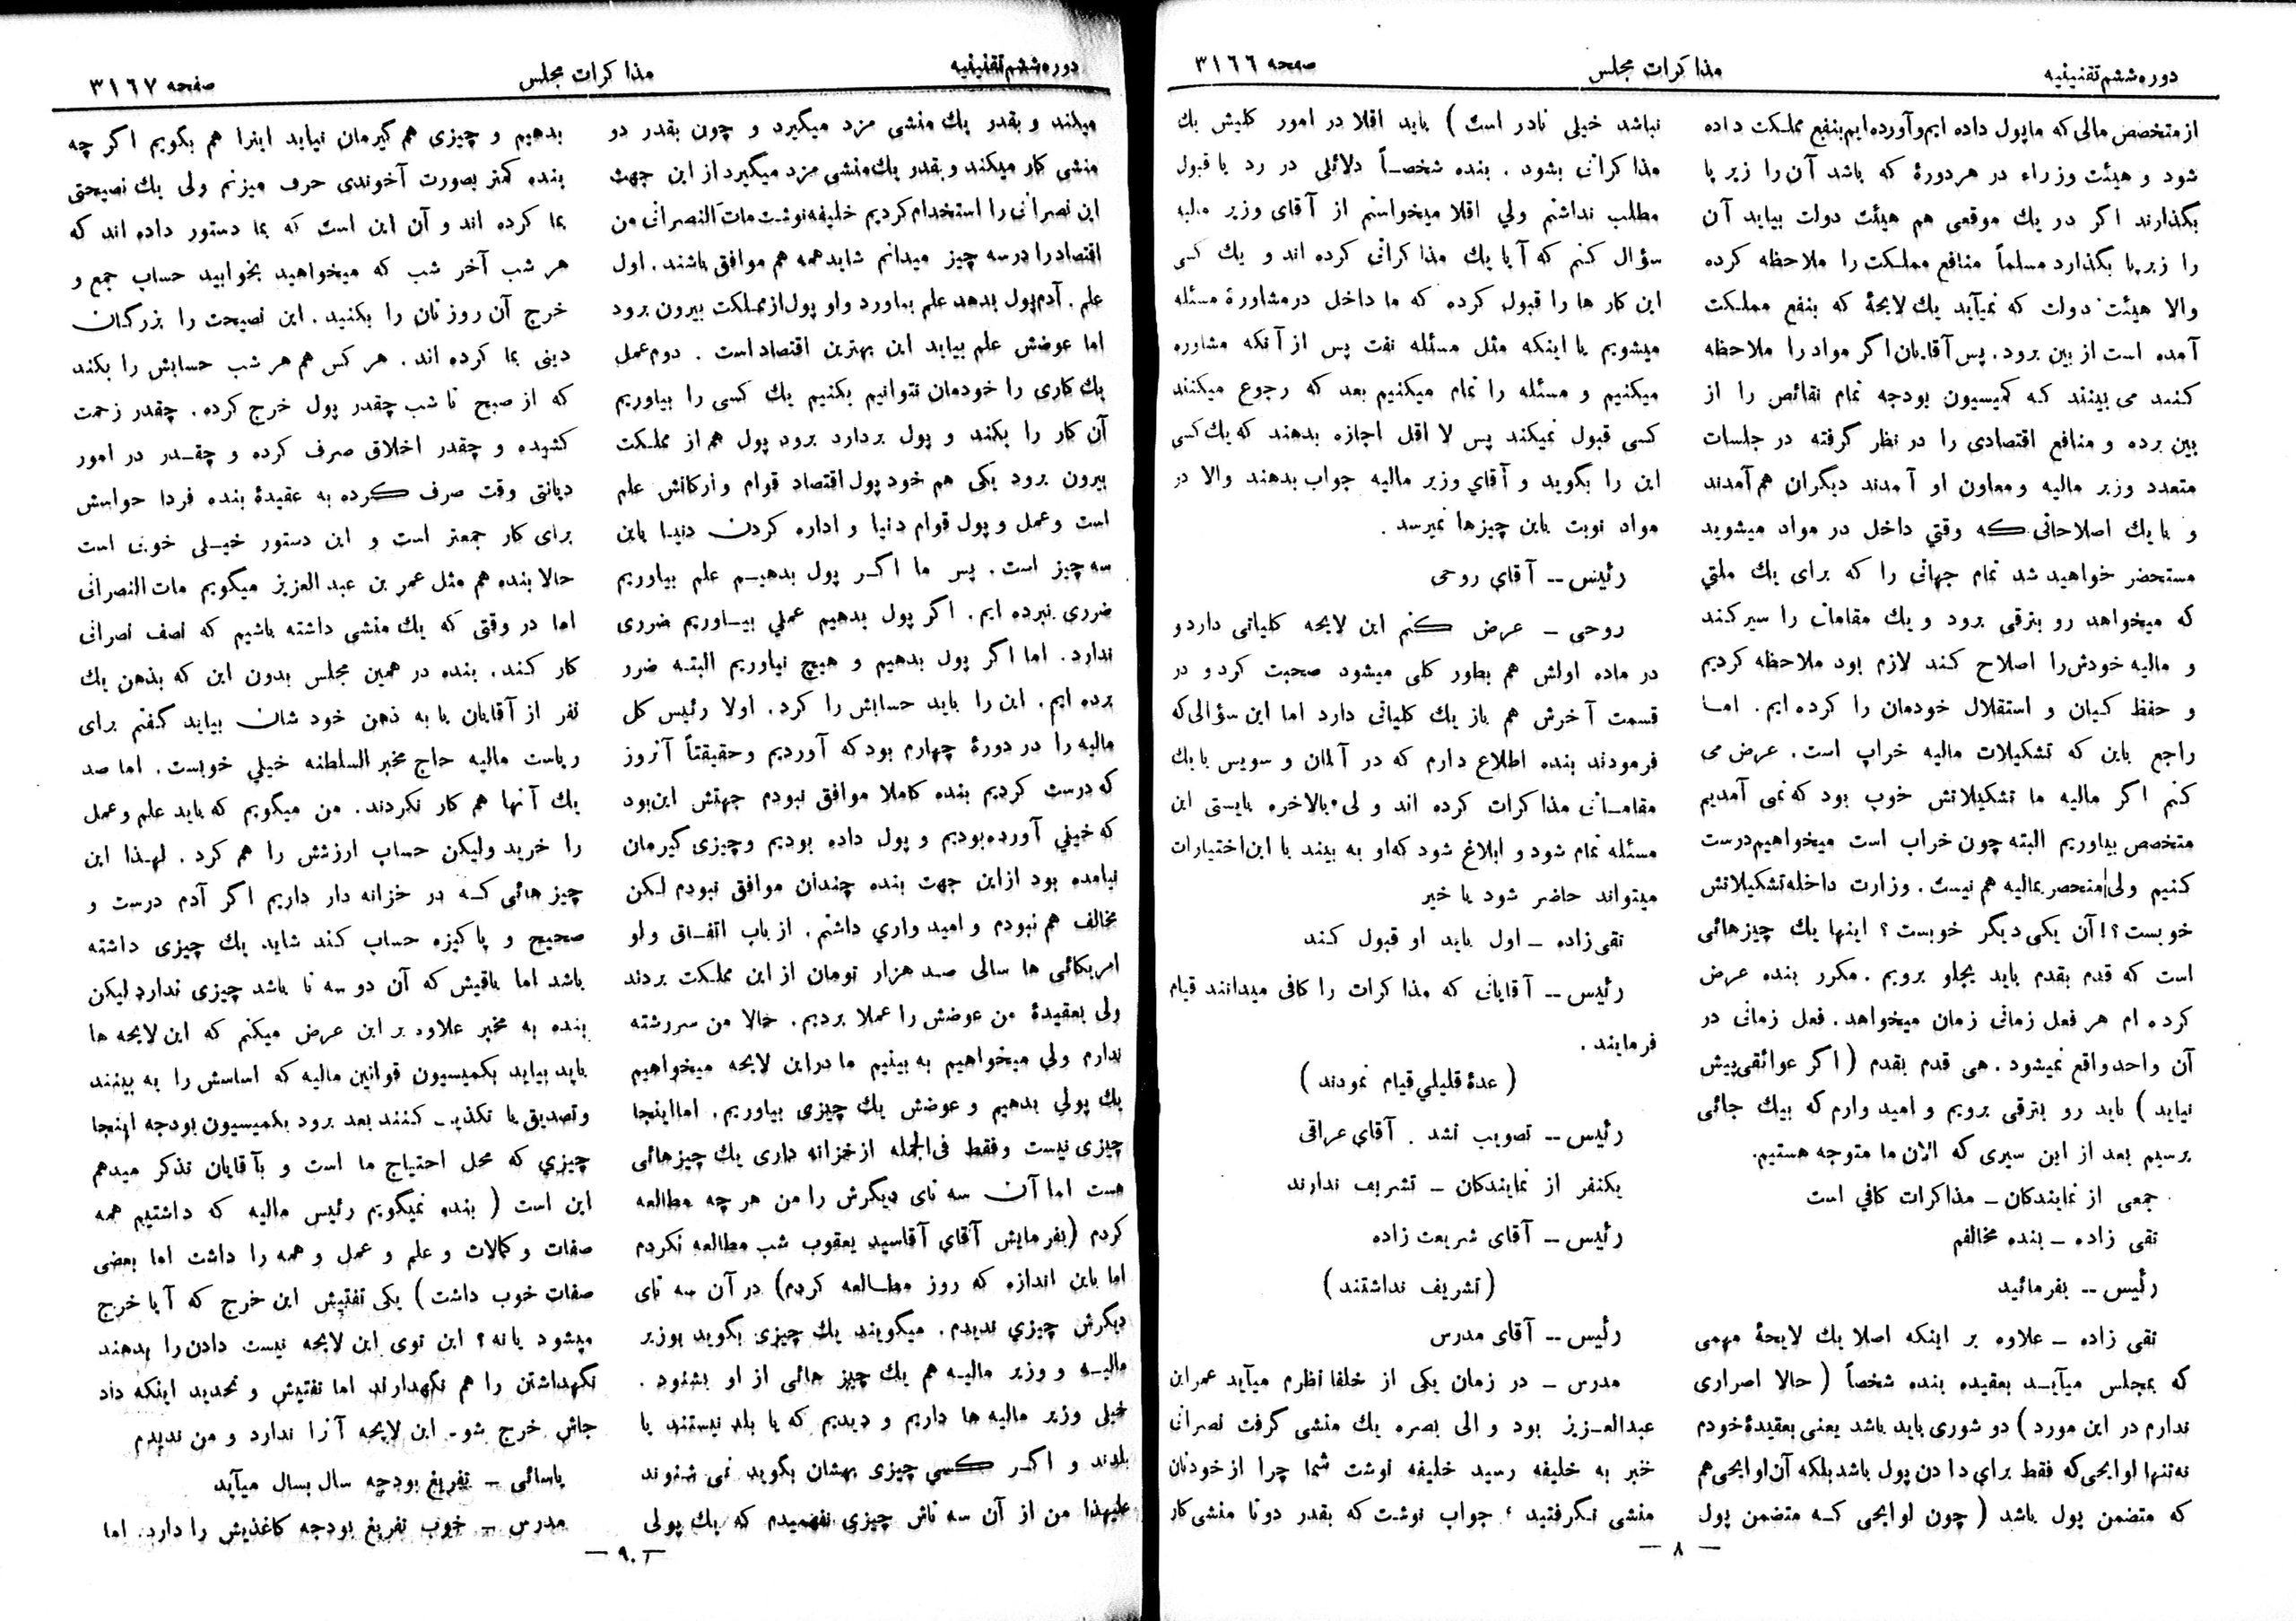 دوره ششم تقنینیه
مذاکرات مجلس
صفحه ٣١٦٦
از متخصص مالی که ما پول داده ایم و آورده ایم بنفع مملکت داده
شود و هیئت وزراء در هر دورهٔ که باشد آن را زیر پا
بگذارند اگر در یك موقعی هم هیئت دولت بیاید آن
را زیر پا بگذارد مسلماً منافع مملکت را ملاحظه کرده
والا هیئت دولت که نمیآید یك لایحهٔ که بنفع مملکت
آمده است از بین برود. پس آقایان اگر مواد را ملاحظه
کنند می بینند که کمیسیون بودجه تمام نقائص را از
بین برده و منافع اقتصادی را در نظر گرفته در جلسات
متعدد وزیر مالیه و معاون او آمدند دیگران هم آمدند
و با یك اصلاحاتی که وقتي داخل در مواد میشوید
مستحضر خواهید شد تمام جهاتی را که برای یك ملتي
که میخواهد رو بترقی برود و یك مقاماتی را سیر کند
و مالیه خودش را اصلاح کند لازم بود ملاحظه کردیم
و حفظ کیان و استقلال خودمان را کرده ایم. اما
راجع باین که تشکیلات مالیه خراب است. عرض می
کنم اگر مالیه ما تشکیلاتش خوب بود که نمی آمدیم
متخصص بیاوریم البته چون خراب است میخواهیم درست
کنیم ولی منحصر بمالیه هم نیست. وزارت داخله تشکیلاتش
خوبست؟! آن یکی دیگر خوبست؟ اینها یك چیزهائی
است که قدم بقدم باید بجلو برویم. مکرر بنده عرض
کرده ام هر فعل زمانی زمان میخواهد. فعل زمانی در
آن واحد واقع نمیشود. هی قدم بقدم (اگر عوائقی پیش
نیاید) باید رو بترقی برویم و امید وارم که بیك جائی
برسیم بعد از این سیری که الان ما متوجه هستیم.
جمعی از نمایندگان ـ مذاکرات کافي است
تقی زاده ـ بنده مخالفم
رئیس -- بفرمائید
تقی زاده ـ علاوه بر اینکه اصلا یك لایحهٔ مهمی
که بمجلس میآید بعقیده بنده شخصاً (حالا اصراری
ندارم در این مورد) دو شوری باید باشد یعنی بعقیدهٔ خودم
نه تنها لوایحی که فقط برای دادن پول باشد بلکه آن لوایحی هم
که متضمن پول باشد (چون لوایحی که متضمن پول
نباشد خیلی نادر است) باید اقلا در امور کلیش یك
مذاکراتی بشود. بنده شخصاً دلائلی در رد یا قبول
مطلب نداشتم ولي اقلا میخواستم از آقای وزیر مالیه
سؤال کنم که آیا یك مذاکراتی کرده اند و یك کسی
این کار ها را قبول کرده که ما داخل در مشاورهٔ مسئله
میشویم یا اینکه مثل مسئله نفت پس از آنکه مشاوره
میکنیم و مسئله را تمام میکنیم بعد که رجوع میکنند
کسی قبول نمیکند پس لا اقل اجازه بدهند که یك کسی
این را بگوید و آقاي وزیر مالیه جواب بدهند والا در
مواد نوبت باین چیزها نمیرسد.
رئیس -- آقاي روحی
روحی ـ عرض کنم این لایحه کلیاتی دارد و
در ماده اولش هم بطور کلی میشود صحبت کرد و در
قسمت آخرش هم باز یك کلیاتی دارد اما این سؤالی که
فرمودند بنده اطلاع دارم که در آلمان و سویس با یك
مقاماتی مذاکرات کرده اند و لی بالاخره بایستی این
مسئله تمام شود و ابلاغ شود که او به بیند با این اختیارات
میتواند حاضر شود یا خیر
تقی زاده ـ اول باید او قبول کند
رئیس -- آقایانی که مذاکرات را کافی میدانند قیام
فرمایند.
(عدهٔ قلیلي قیام نمودند)
رئیس -- تصویب نشد. آقاي عراقی
یکنفر از نمایندگان ـ تشریف ندارند
رئیس -- آقای شریعت زاده
(تشریف نداشتند)
رئیس -- آقای مدرس
مدرس ـ در زمان یکی از خلفا نظرم میآید عمر ابن
عبدالعزیز بود والی بصره یك منشی گرفت نصرانی
خبر به خلیفه رسید خلیفه نوشت شما چرا از خودتان
منشی نگرفتید؟ جواب نوشت که بقدر دوتا منشی کار
— ٨ —
دوره ششم تقنینیه
مذاکرات مجلس
صفحه ٣١٦٧
میکند و بقدر یك منشی مزد میگیرد و چون بقدر دو
منشی کار میکند و بقدر یك منشی مزد میگیرد از این جهت
این نصرانی را استخدام کردیم خلیفه نوشت مات النصرانی من
اقتصاد را در سه چیز میدانم شاید همه هم موافق باشند. اول
علم. آدم پول بدهد علم بیاورد ولو پول از مملکت بیرون برود
اما عوضش علم بیاید این بهترین اقتصاد است. دوم عمل
یك کاری را خودمان نتوانیم بکنیم یك کسی را بیاوریم
آن کار را بکند و پول بردارد برود پول هم از مملکت
بیرون برود یکی هم خود پول اقتصاد قوام و ارکانش علم
است و عمل و پول قوام دنیا و اداره کردن دنیا باین
سه چیز است. پس ما اگر پول بدهیم علم بیاوریم
ضرری نبرده ایم. اگر پول بدهیم عملي بیاوریم ضرری
ندارد. اما اگر پول بدهیم و هیچ نیاوریم البته ضرر
برده ایم. این را باید حسابش را کرد. اولا رئیس کل
مالیه را در دورهٔ چهارم بود که آوردیم و حقیقتاً آنروز
که درست کردیم بنده کاملا موافق نبودم جهتش این بود
که خیلي آورده بودیم و پول داده بودیم و چیزی گیرمان
نیامده بود از این جهت بنده چندان موافق نبودم لکن
مخالف هم نبودم و امید واري داشتم. از باب اتفاق ولو
امریکائی ها سالی صد هزار تومان از این مملکت بردند
ولی بعقیدهٔ من عوضش را عملا بردیم. حالا من سررشته
ندارم ولي میخواهیم به بینیم ما در این لایحه میخواهیم
یك پولي بدهیم و عوضش یك چیزی بیاوریم. اما اینجا
چیزی نیست و فقط فی الجمله از خزانه داری یك چیزهائی
هست اما آن سه تای دیگرش را من هر چه مطالعه
کردم (بفرمایش آقای آقاسید یعقوب شب مطالعه نکردم
اما باین اندازه که روز مطالعه کردم) در آن سه تای
دیگرش چیزي ندیدم. میگویند یك چیزی بگوید بوزیر
مالیه و وزیر مالیه هم یك چیز هائی از او بشنود.
خیلی وزیر مالیه ها داریم و دیدیم که یا بلد نیستند یا
بلدند و اگر کسي چیزی بهشان بگوید نمی شنوند
علیهذا من از آن سه تاش چیزی نفهمیدم که یك پولی
بدهیم و چیزی هم گیرمان نیاید اینرا هم بگویم اگر چه
بنده کمتر بصورت آخوندی حرف میزنم ولی یك نصیحتی
بما کرده اند و آن این است که بما دستور داده اند که
هر شب آخر شب که میخواهید بخوابید حساب جمع و
خرج آن روز تان را بکنید. این نصیحت را بزرگان
دینی بما کرده اند. هر کس هم هر شب حسابش را بکند
که از صبح تا شب چقدر پول خرج کرده. چقدر زحمت
کشیده و چقدر اخلاق صرف کرده و چقدر در امور
دیانتی وقت صرف کرده به عقیدهٔ بنده فردا حواسش
برای کار جمعتر است و این دستور خیلی خوبی است
حالا بنده هم مثل عمر بن عبد العزیز میگویم مات النصرانی
اما در وقتی که یك منشی داشته باشیم که نصف نصرانی
کار کند. بنده در همین مجلس بدون این که بذهن یك
نفر از آقایان یا به ذهن خود شان بیاید گفتم برای
ریاست مالیه حاج مخبر السلطنه خیلي خوبست. اما صد
یك آنها هم کار نکردند. من میگویم که باید علم و عمل
را خرید ولیکن حساب ارزشش را هم کرد. لهذا این
چیز هائی که در خزانه دار داریم اگر آدم درست و
صحیح و پاکیزه حساب کند شاید یك چیزی داشته
باشد اما باقیش که آن دو سه تا باشد چیزی ندارد لیکن
بنده به مخبر علاوه بر این عرض میکنم که این لایحه ها
باید بیاید بکمیسیون قوانین مالیه که اساسش را به بینند
و تصدیق یا تکذیب کنند بعد برود بکمیسیون بودجه اینجا
چیزي که محل احتیاج ما است و بآقایان تذکر میدهم
این است (بنده نمیگویم رئیس مالیه که داشتیم همه
صفات و کمالات و علم و عمل و همه را داشت اما بعضی
صفات خوب داشت) یکی تفتیش این خرج که آیا خرج
میشود یا نه؟ این توی این لایحه نیست دادن را بدهند
نگهداشتن را هم نگهدارند اما تفتیش و تحدید اینکه داد
جاش خرج شود این لایحه آنرا ندارد و من ندیدم
یاسائی ـ تفریغ بودجه سال بسال میآید
مدرس ـ خوب تفریغ بودجه کاغذیش را دارد. اما
— ٩ —